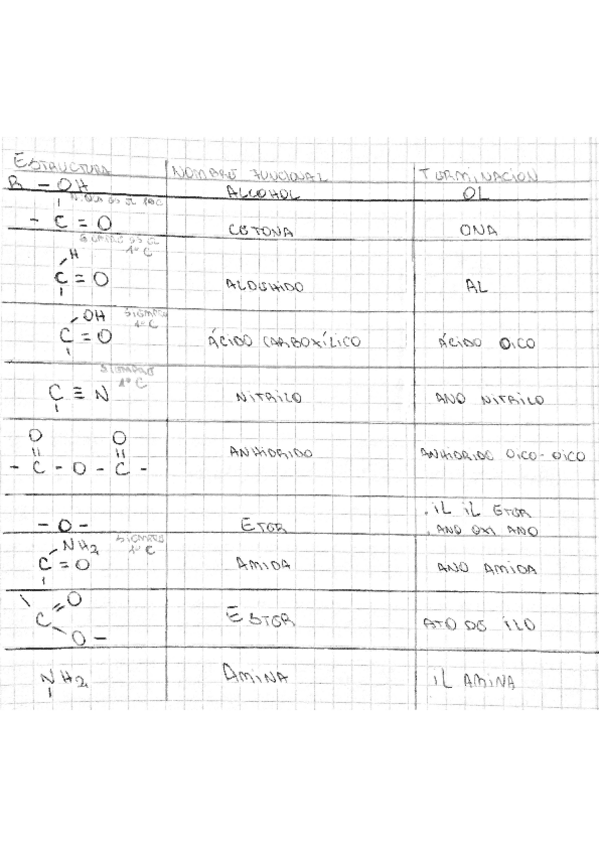 ESTRUCTURA NOMBRE FUNCIONAL TERMINACION
R - OH ALCOHOL OL
- C = O CETONA ONA
H
C = O ALDEHIDO AL
1º C
OH SIEMPRE
1º C
C = O ÁCIDO CARBOXÍLICO ÁCIDO OICO
1º C
C ≡ N NITRILO ANO NITRILO
O O
- C - O - C - ANHIDRIDO ANHIDRIDO OICO-OICO
- O - ETER . IL IL ETER
. ANO OXI ANO
NH2 SIEMPRE
1º C
C = O AMIDA ANO AMIDA
C = O
O - ESTER ATO DE ILO
NH2 AMINA IL AMINA